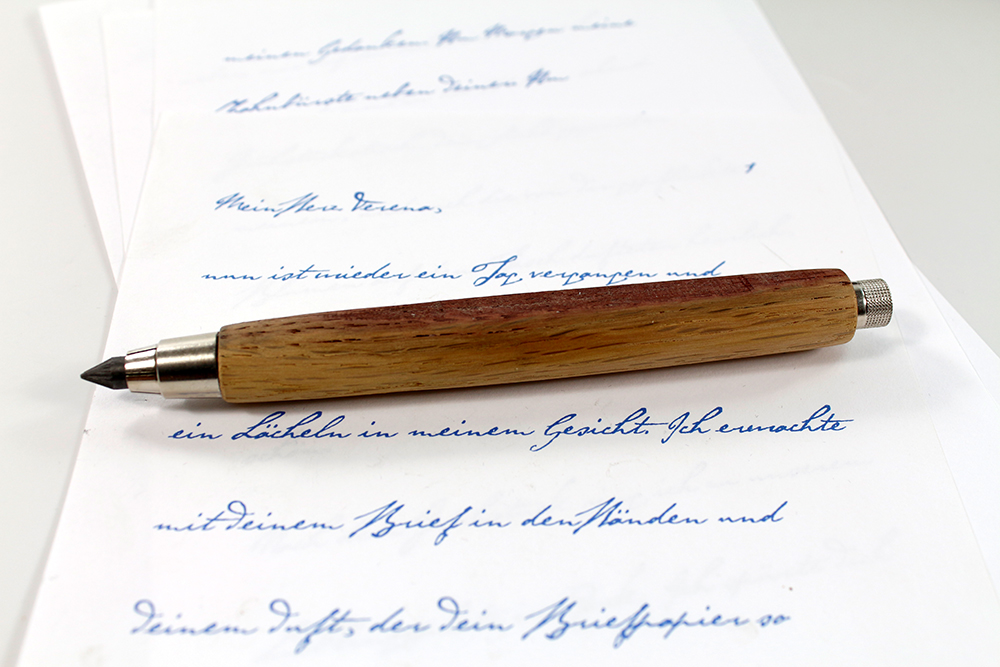 meinen Gedanken. Am Morgen meine
Zahnbürste neben deiner Am
Mein Herz Verena,
nun ist wieder ein Tag vergangen und
ein Lächeln in meinem Gesicht. Ich erwachte
mit deinem Brief in den Händen und
deinem Duft, der dein Briefpapier so